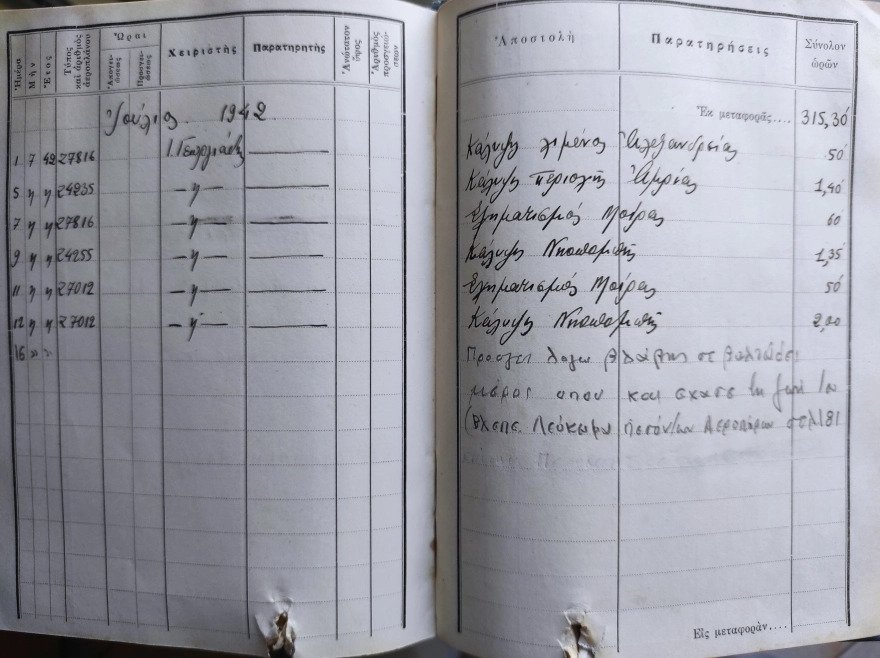 Ἡμέρα Μὴν Ἔτος Τύπος καὶ ἀριθμὸς ἀεροπλάνου Ὧραι Ἀπογειώσεως Προσγειώσεως Χειριστὴς Παρατηρητὴς Ἀνώτατον ὕψος Ἀριθμὸς προσγειώσεων
Ἰούλιος 1942
1 7 42 Z7816 Ι.
5 η η Z4235 — η —
7 η η Z7816 — η —
9 η η Z4255 — η —
11 η η Z7012 — η —
12 η η Z7012 — η —
16 » »
Ἀποστολὴ Παρατηρήσεις Σύνολον ὡρῶν
Ἐκ μεταφορᾶς.... 315,30
Κάλυψη λιμένος Ἀλεξανδρείας 50
Κάλυψη περιοχῆς Ἀμρίας 1,40
Σχηματισμός Μοίρας 60
Κάλυψη Νηοπομπῆς 1,35
Σχηματισμός Μοίρας 50
Κάλυψη Νηοπομπῆς 2,00
λόγω βλάβης σε βαλτώδες
μέρος οπου και εχασε τη ζωή του
(Βλεπε Λεύκωμα Πεσόντων Αεροπόρων σελ 181
Εἰς μεταφοράν....